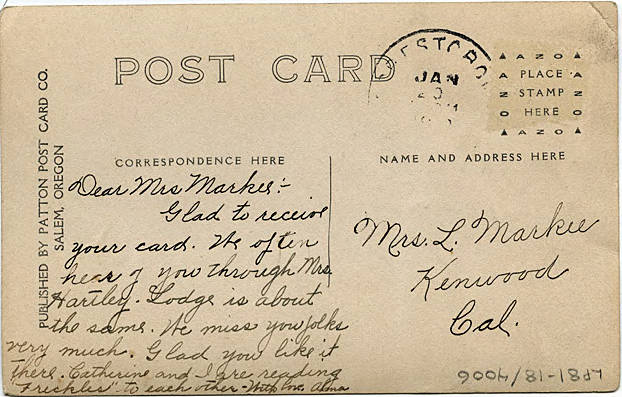 POST CARD
WESTBORO
JAN
20
AZO
PLACE
STAMP
HERE
AZO
PUBLISHED BY PATTON POST CARD CO.
SALEM, OREGON
CORRESPONDENCE HERE
NAME AND ADDRESS HERE
Dear Mrs Markee:-
Glad to receive
your card. We often
hear of you through Mrs
Hartley. Lodge is about
the same. We miss you folks
very much. Glad you like it
there. Catherine and I are reading
"Freckles" to each other. With love Alma
Mrs. L. Markee
Kenwood
Cal.
LP81-18/4006